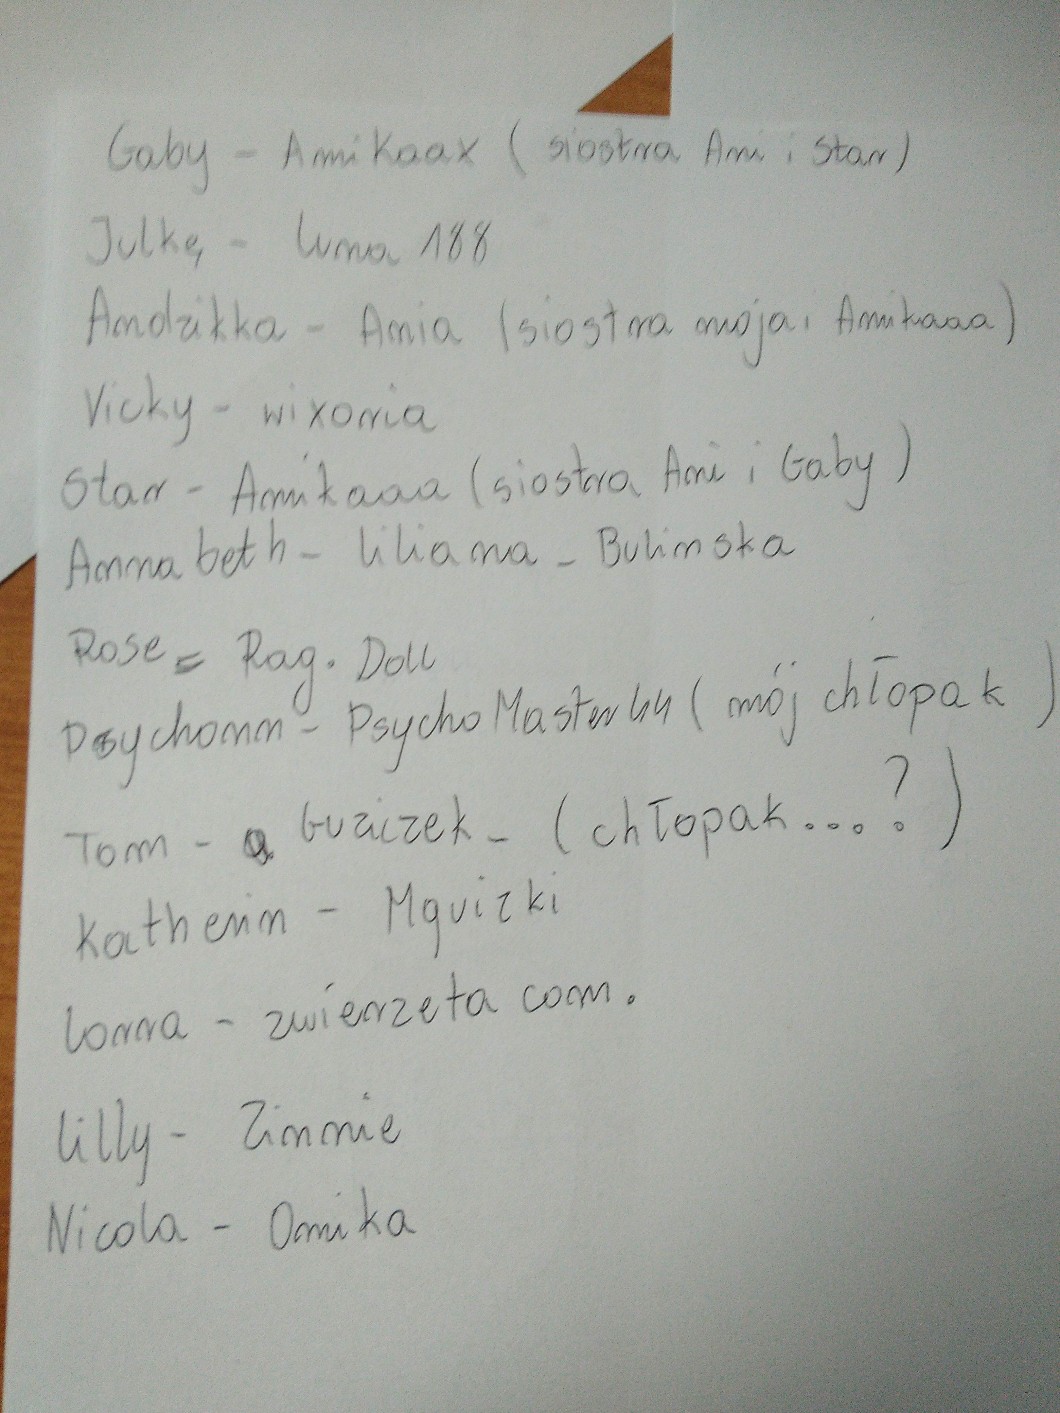 Gaby - Amikaax ( siostra Ani i Star )
Julkę - Luna 188
Andzikka - Ania ( siostra moja i Amikaaa )
Vicky - wixonia
Star - Amikaaa ( siostra Ani i Gaby )
Annabeth - liliana - Bulinska
Rose = Rag. Doll
Psychomn - PsychoMaster44 ( mój chłopak )
Tom - Guziczek - ( chłopak .... ? )
Katherin - Mquizki
Lonna - zwierzeta com.
Lilly - Zinnie
Nicola - Omika